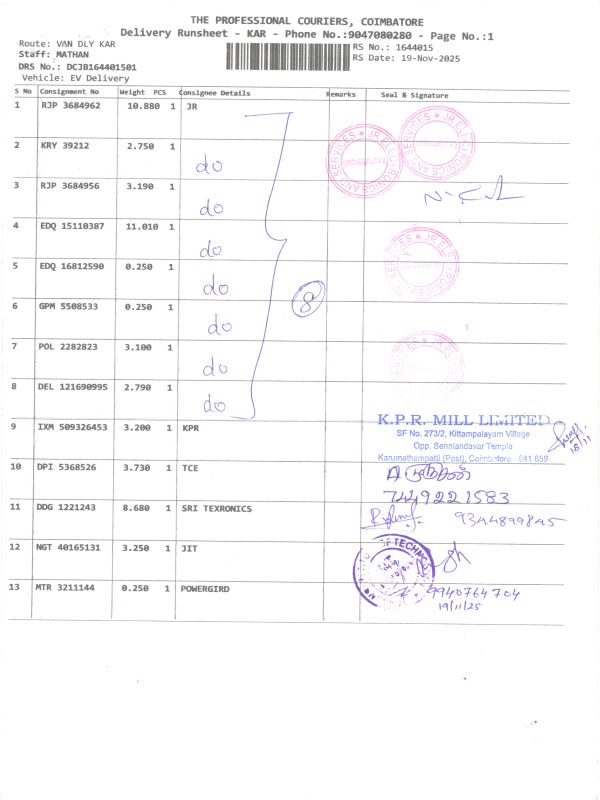 THE PROFESSIONAL COURIERS, COIMBATORE
Delivery Runsheet - KAR - Phone No.:9047080280 - Page No.:1
Route: VAN DLY KAR
Staff: MATHAN
DRS No.: DCJB164401501
Vehicle: EV Delivery
RS No.: 1644015
RS Date: 19-Nov-2025
S No Consignment No Weight PCS Consignee Details Remarks Seal & Signature
1 RJP 3684962 10.880 1 JR
2 KRY 39212 2.750 1 do
3 RJP 3684956 3.190 1 do
4 EDQ 15110387 11.010 1 do
5 EDQ 16812590 0.250 1 do
6 GPM 5508533 0.250 1 do
7 POL 2282823 3.100 1 do
8 DEL 121690995 2.790 1 do
8
9 IXM 509326453 3.200 1 KPR
K.P.R. MILL LIMITED
SF No. 273/2, Kittampalayam Village
Opp. Senniandavar Temple
Karumathampatti (Post), Coimbatore - 641 659
18/11
10 DPI 5368526 3.730 1 TCE
7449221583
11 DDG 1221243 8.680 1 SRI TEXRONICS
9344899845
12 NGT 40165131 3.250 1 JIT
13 MTR 3211144 0.250 1 POWERGIRD
9940764704
19/11/25